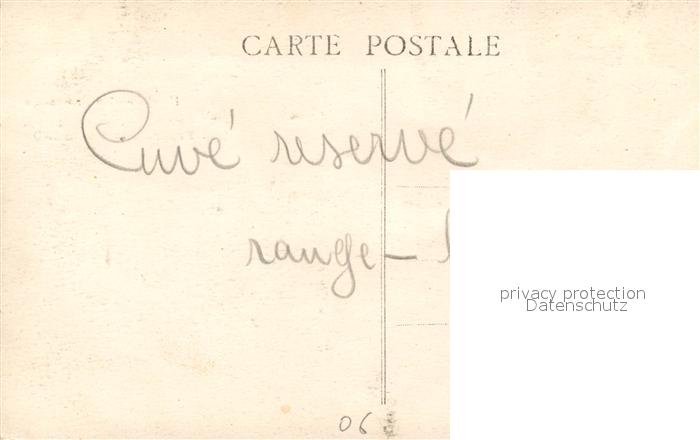 CARTE POSTALE
Cuvé reservé
range-
privacy protection
Datenschutz
06